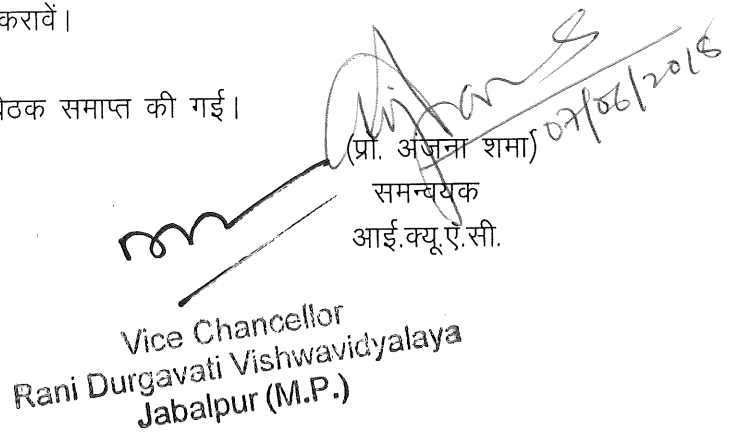 करावें।
बैठक समाप्त की गई।
07/06/2018
(प्रो. अंजना शर्मा)
समन्वयक
आई.क्यू.ऐ.सी.
Vice Chancellor
Rani Durgavati Vishwavidyalaya
Jabalpur (M.P.)